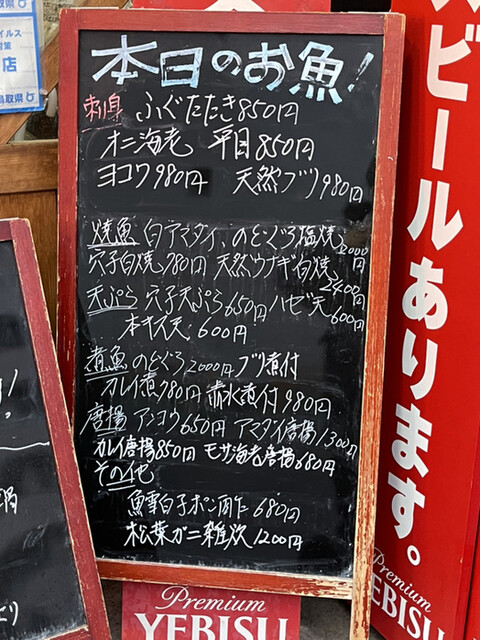 本日のお魚!
刺身 ふぐたたき850円
オニ海老 平目850円
ヨコワ980円 天然ブリ980円
焼魚 白アマダイ、のどぐろ塩焼2000円
穴子白焼980円 天然ウナギ白焼2400円
天ぷら 穴子天ぷら650円 ハゼ天600円
本キス天:600円
煮魚 のどぐろ2000円 ブリ煮付
カレイ煮980円 赤水煮付980円
唐揚 アンコウ650円 アマダイ唐揚1300円
カレイ唐揚850円 モサ海老唐揚680円
その他
魚雲白子ポン酢 680円
松葉ガニ雑炊1200円
ビールあります。
Premium
YEBISU
Premium
YEBISU
イルス
店
鳥取県
鍋